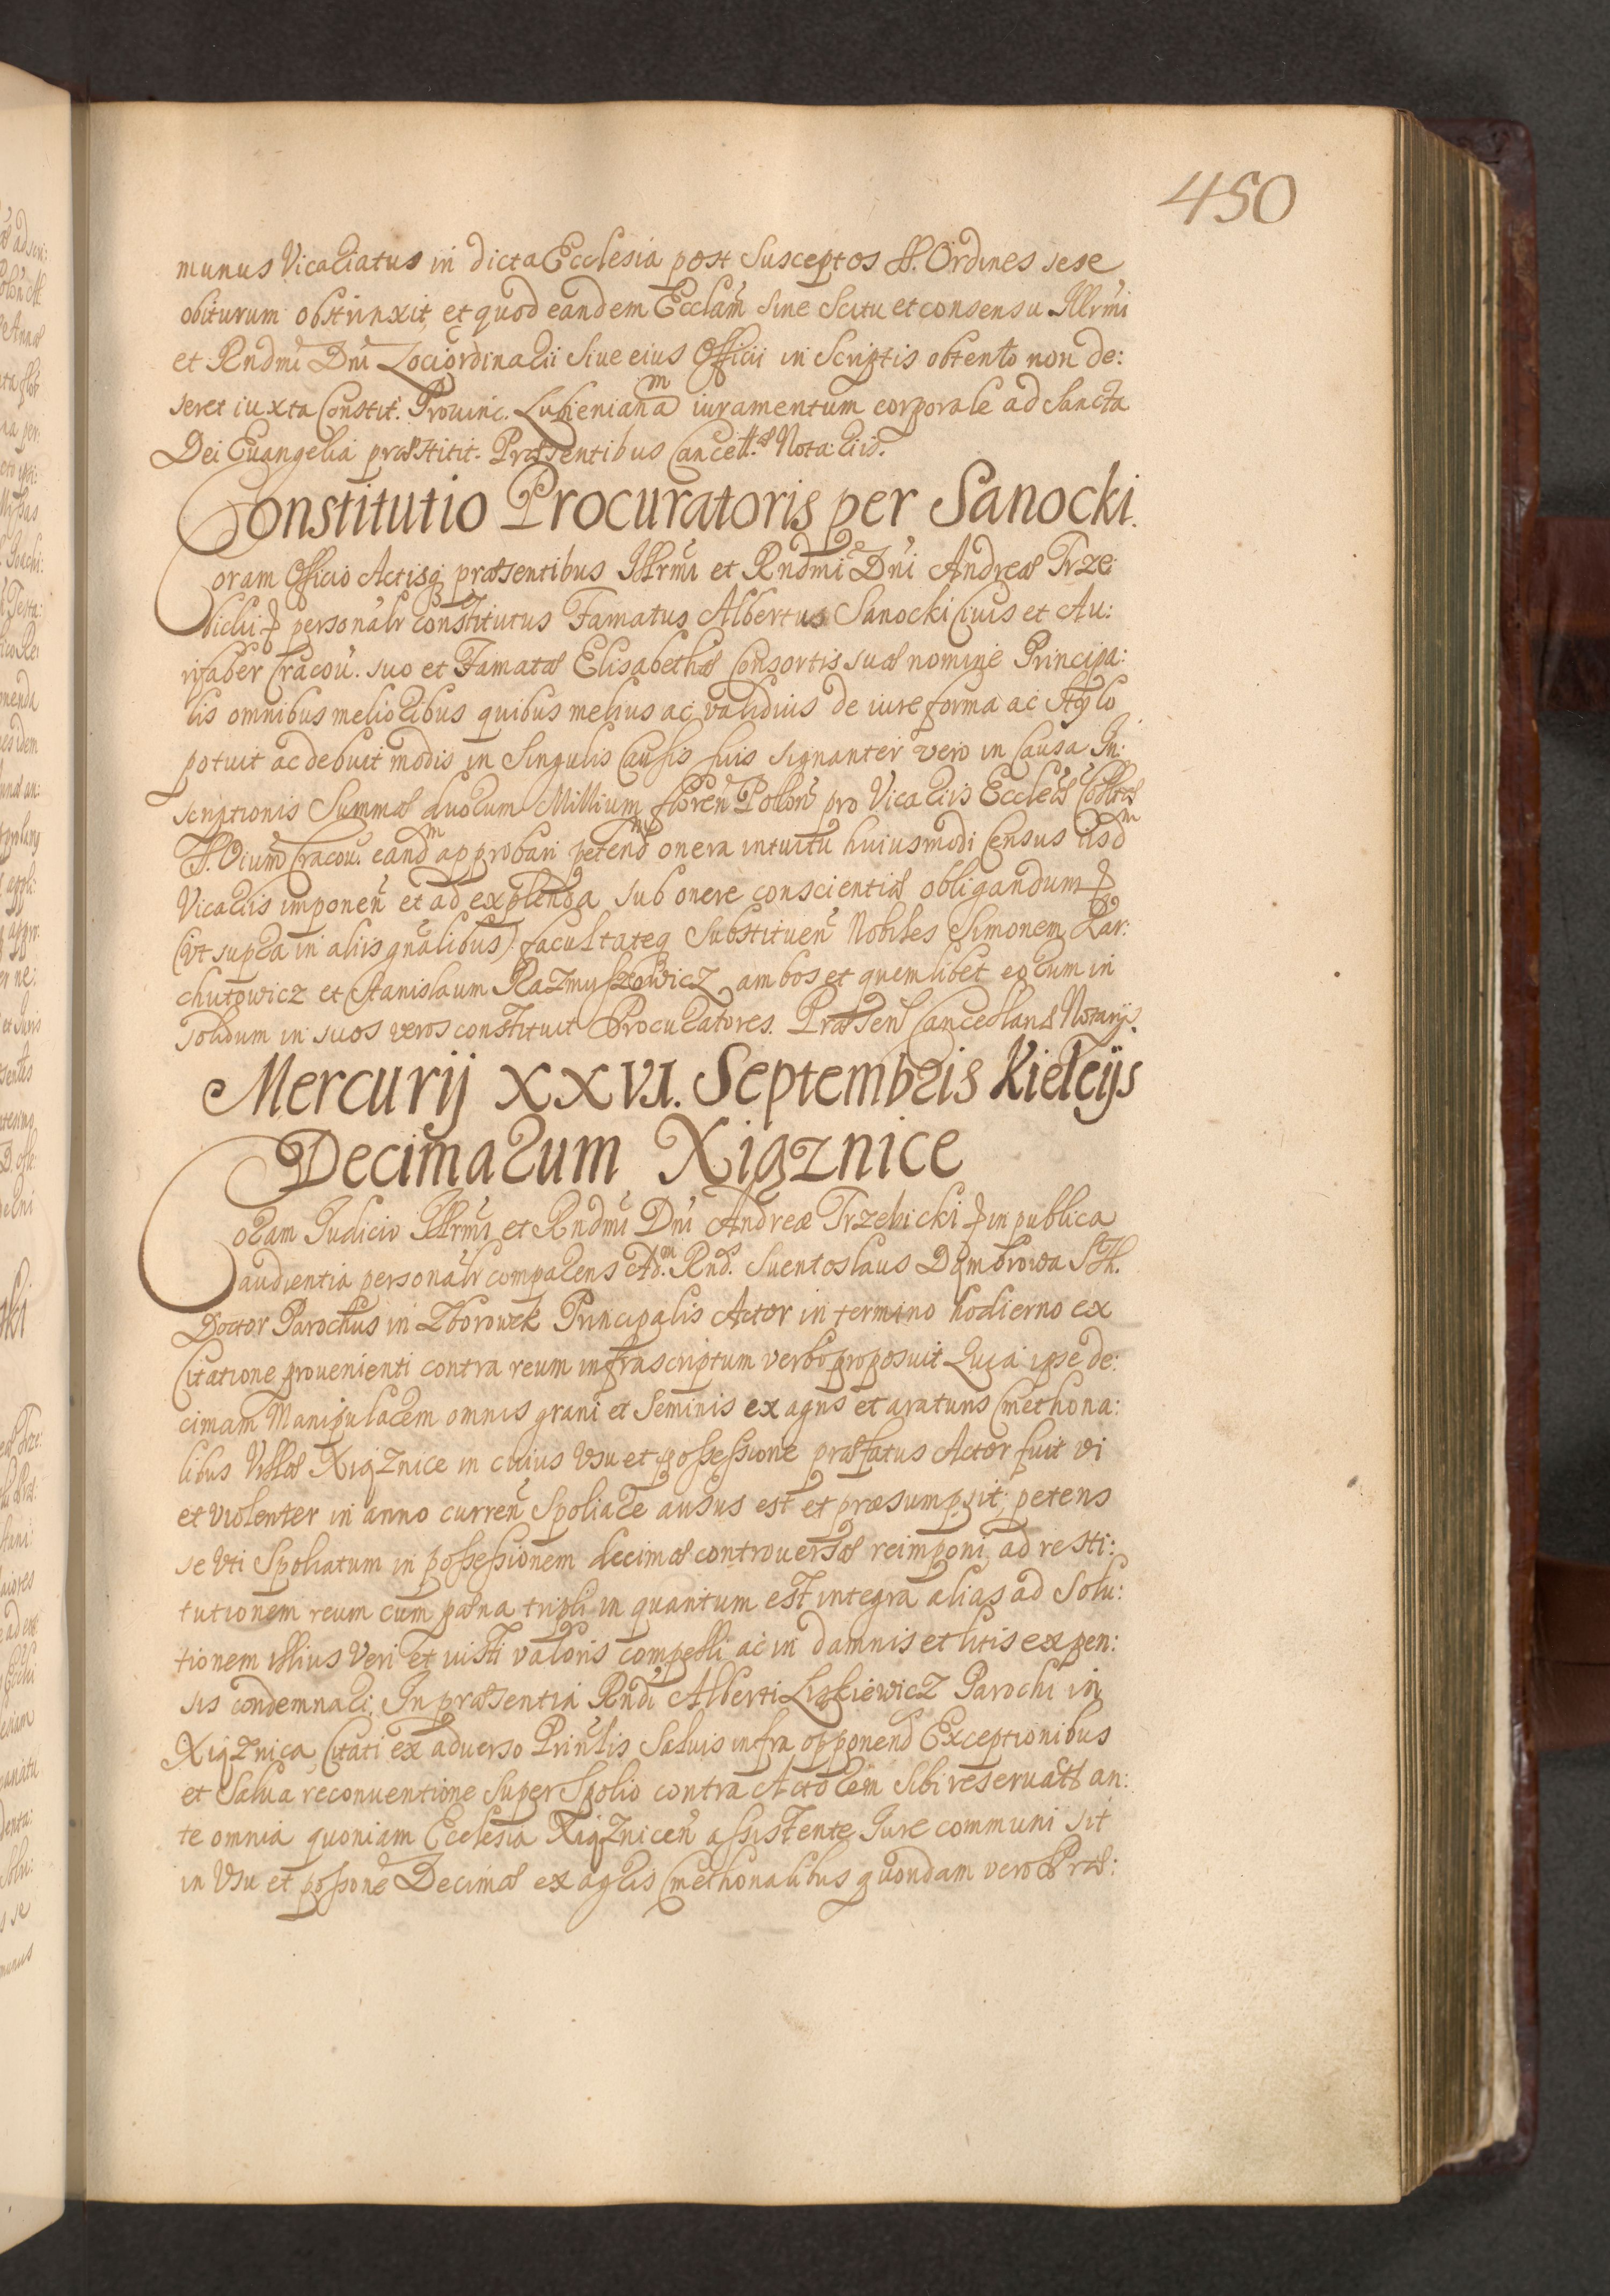 450
munus Vicariatus in dicta Ecclesia post Susceptos SS. Ordines sese
obiturum obstrinxit, et quod eandem Ecclam Sine Scitu et consensu Illrmi
et Rndmi Dni Lociordinarii Siue eius Officii in Scriptis obtento non de:
seret iuxta Constit. Prouinc. Lubieniana m iuramentum corporale ad Sancta
Dei Euangelia præstitit. Præsentibus Cancell. et Notariis.
Constitutio Procuratoris per Sanocki.
Coram Officio Actisq præsentibus Illrmi et Rndmi Dni Andreæ Trze
bicki personalr Constitutus Famatus Albertus Sanocki Ciuis et Au:
rifaber Cracou. suo et Famatæ Elisabethæ Consortis suæ nomine Principa:
lis omnibus melioribus quibus melius ac validius de iure forma ac Stylo
potuit ac debuit modis in Singulis Causis suis signanter vero in Causa In:
scriptionis Summæ duorum Millium floren Polon pro Vicariis Eccleæ
SS. Oium Cracou. eandm approbari petend onera intuitu huiusmodi Census iisdm
Vicariis imponen et ad explenda sub onere conscientiæ obligandum
(vt supra in aliis gnalibus) facultateq Substituen Nobiles Simonem Lar:
chutowicz et Stanislaum Razmuszowicz ambos et quemlibet eorum in
solidum in suos veros constituit Procuratores. Præsen Cancellar et Notarijs.
Mercurij XXVI. Septembris Kielcijs
Decimarum Xiąznice
Coram Judicio Illrmi et Rndmi Dni Andreæ Trzebicki in publica
audientia personalr comparens Adm. Rnds. Suentoslaus Dąmbrowa STh.
Doctor Parochus in Zborowek Principalis Actor in termino hodierno ex
Citatione prouenienti contra reum infrascriptum verbo proposuit Quia ipse de:
cimam Manipularem omnis grani et Seminis ex agris et araturis Cmethona:
libus Villæ Xiąznice in cuius Vsu et possessione præfatus Actor fuit vi
et violenter in anno curren Spoliare ausus est et præsumpsit; petens
se Vti Spoliatum in possessionem decimæ controuersæ reimponi, ad resti:
tutionem reum cum pæna tripli in quantum est integra alias ad Solu:
tionem illius Veri et iusti valoris compelli ac in damnis et litis expen:
sis condemnari. In præsentia Rndi Alberti Liskiewicz Parochi in
Xiąznica, Citati ex aduerso Prinlis Saluis infra opponend Exceptionibus
et Salua reconuentione Super Spolio contra Actorem Sibi reseruatt an:
te omnia quoniam Ecclesia Xiąznicen assistente Jure communi sit
in Vsu et possone Decimæ ex agris Cmethonalibus quondam vero Præ: